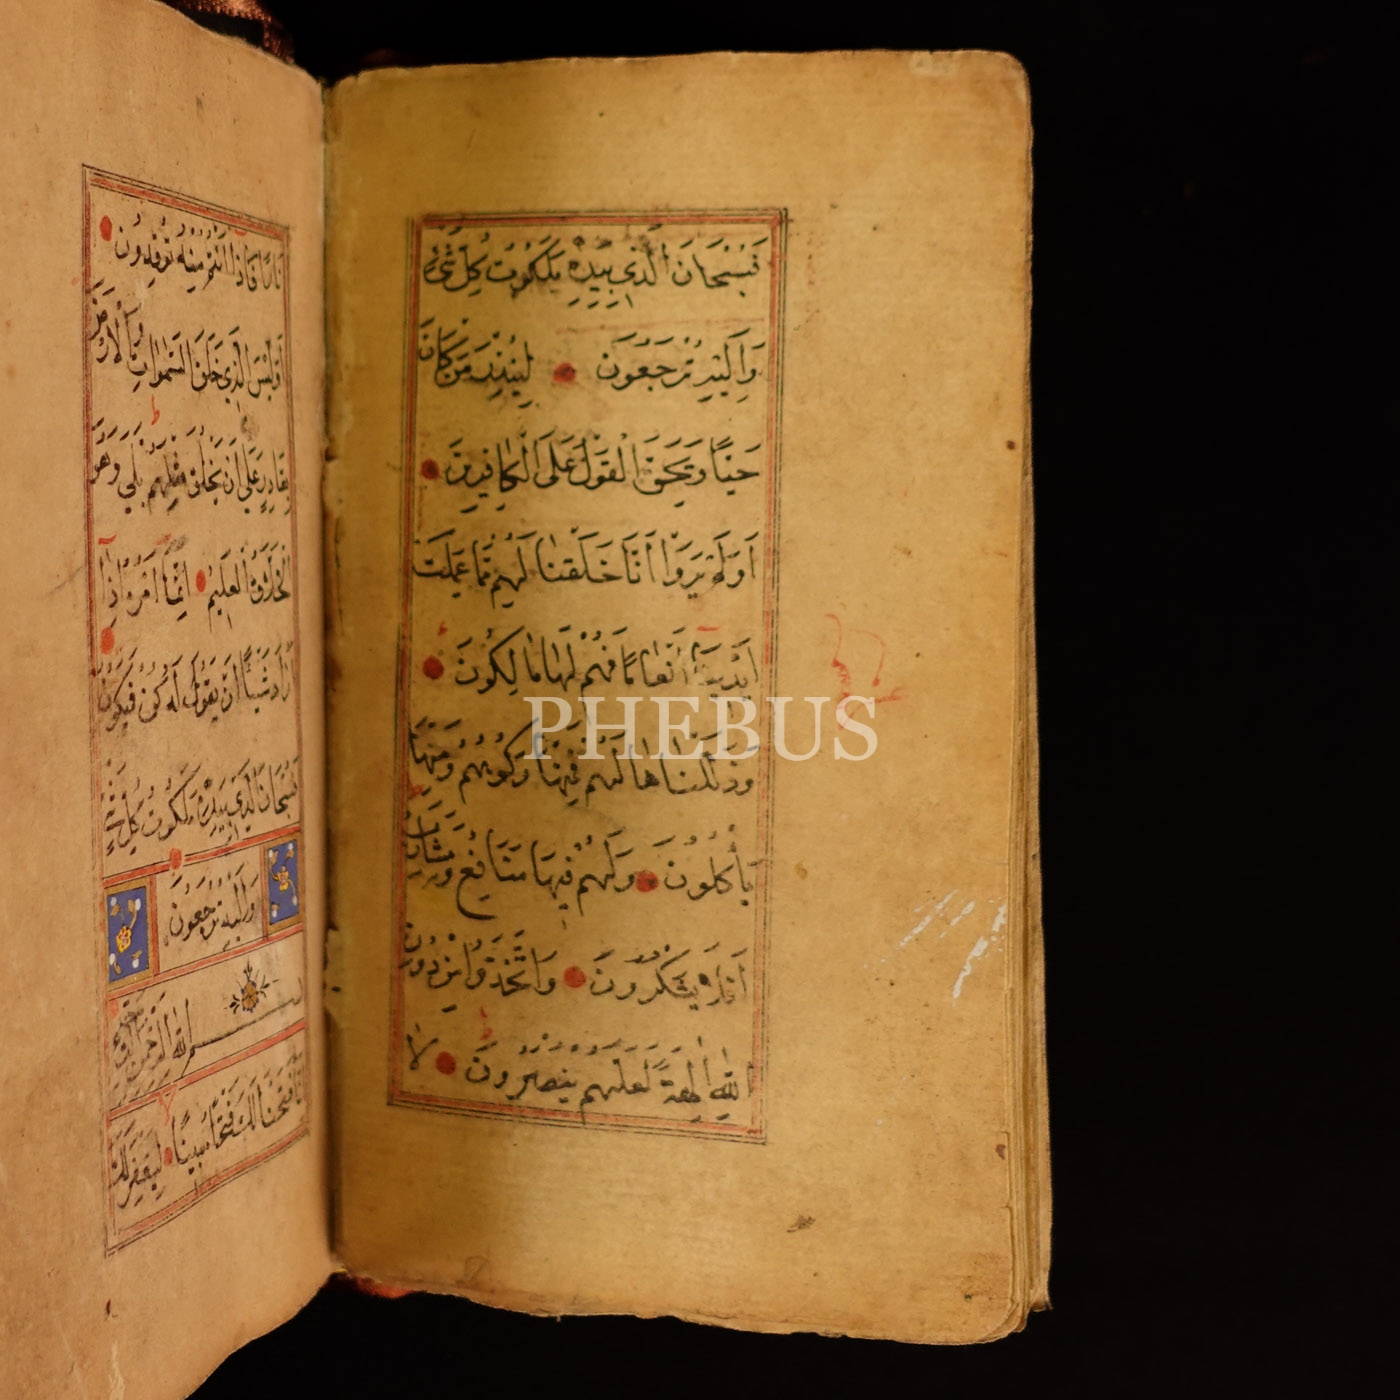 فَسُبْحَانَ الَّذِي بِيَدِهِ مَلَكُوتُ كُلِّ شَيْءٍ
وَإِلَيْهِ تُرْجَعُونَ لِيُنْذِرَ مَنْ كَانَ
حَيًّا وَيَحِقَّ الْقَوْلُ عَلَى الْكَافِرِينَ
أَوَلَمْ يَرَوْا أَنَّا خَلَقْنَا لَهُمْ مِمَّا عَمِلَتْ
أَيْدِينَا أَنْعَامًا فَهُمْ لَهَا مَالِكُونَ
وَذَلَّلْنَاهَا لَهُمْ فَمِنْهَا رَكُوبُهُمْ وَمِنْهَا
يَأْكُلُونَ وَلَهُمْ فِيهَا مَنَافِعُ وَمَشَارِبُ
أَفَلَا يَشْكُرُونَ وَاتَّخَذُوا مِنْ دُونِ
اللَّهِ آلِهَةً لَعَلَّهُمْ يُنْصَرُونَ لَا
نَارًا فَإِذَا أَنْتُمْ مِنْهُ تُوقِدُونَ
أَوَلَيْسَ الَّذِي خَلَقَ السَّمٰوَاتِ وَالْأَرْضَ
بِقَادِرٍ عَلَى أَنْ يَخْلُقَ مِثْلَهُمْ بَلَى وَهُوَ
الْخَلَّاقُ الْعَلِيمُ إِنَّمَا أَمْرُهُ إِذَا
أَرَادَ شَيْئًا أَنْ يَقُولَ لَهُ كُنْ فَيَكُونُ
فَسُبْحَانَ الَّذِي بِيَدِهِ مَلَكُوتُ كُلِّ شَيْءٍ
وَإِلَيْهِ تُرْجَعُونَ
بسم الله الرحمن الرحيم
إِنَّا فَتَحْنَا لَكَ فَتْحًا مُبِينًا لِيَغْفِرَ لَكَ
PHEBUS